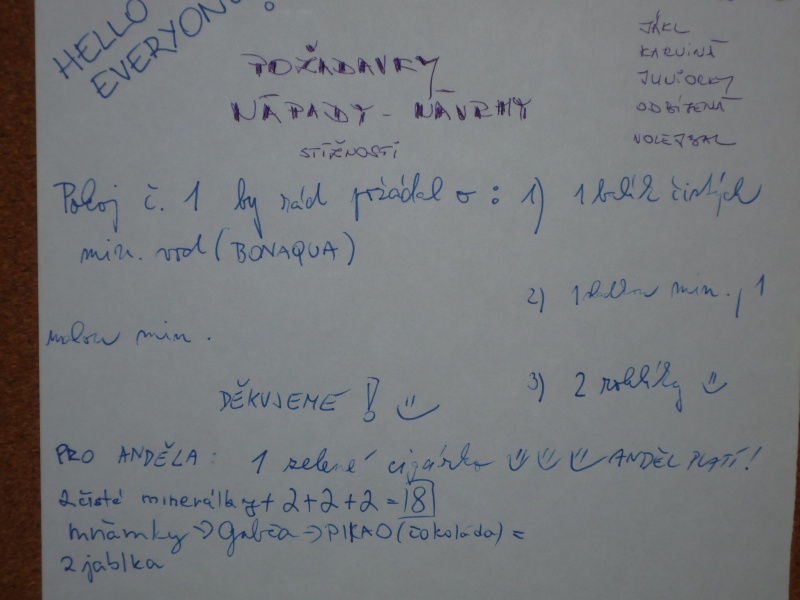 HELLO
EVERYONE!
JÁKL
KARVINÁ
JUNIORKY
ODBÍZENÁ
VOLEJBAL
POŽADAVKY
NÁPADY - NÁVRHY
STÍŽNOSTI
Pokoj č. 1 by rád požádal o : 1) 1 balík čistých
min. vod (BONAQUA)
2) 1 min., 1
malou min.
3) 2 rohlíky
DĚKUJEME!
PRO ANDĚLA: 1 zelené cigárko ANDĚL PLATÍ!
2 čisté minerálky + 2+2+2 = 8
mňamky → Gabča → PIKAO (čokoláda) =
2 jablka